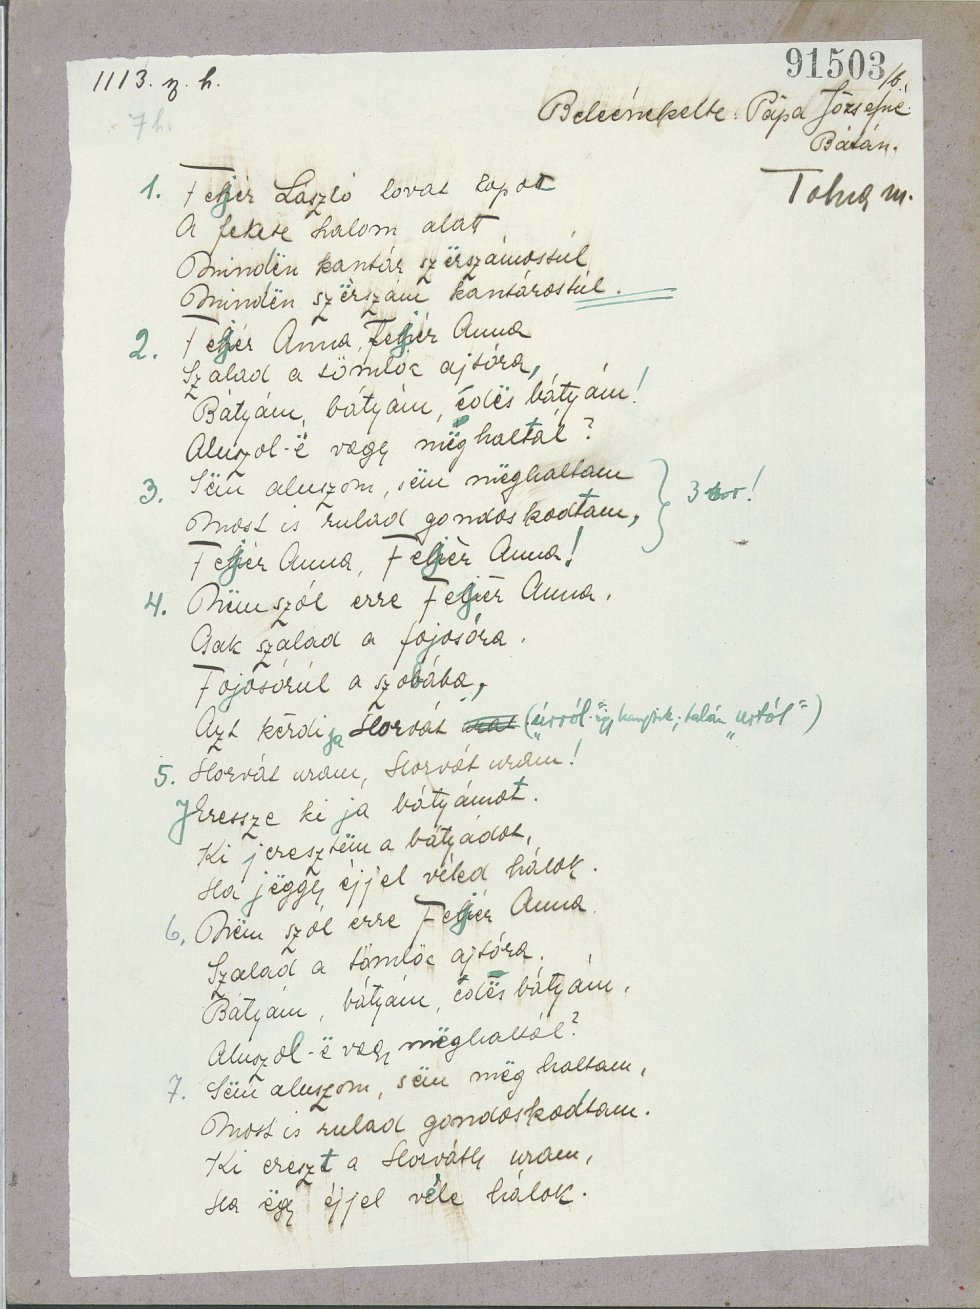 1113. z. h.
91503/b.
7 h.
Beleénekelte: Pápa Józsefné
Bátán.
Tolna m.
1. Fejér László lovat lopott
A fekete halom alatt
Mindën kantár szërszámostúl
Mindën szërszám kantárostúl.
2. Fejér Anna, Fejér Anna
Szalad a tömlöc ajtóra,
Bátyám, bátyám, édës bátyám!
Aluszol-ë vagy mëghaltál?
3. Sëm aluszom, sëm mëghaltam
Most is rulad gondoskodtam,
3 sor!
Fejér Anna, Fejér Anna!
4. Nëm szól erre Fejér Anna.
Csak szalad a fojosóra.
Fojosórúl a szobába,
Azt kérdi ja Horvát (úrról" így hangzik; talán „urtól")
5. Horvát uram, Horvát uram!
Jeressze ki ja bátyámot.
Ki jeresztëm a bátyádot,
Ha jëggy éjjel véled hálok.
6. Nëm szól erre Fejér Anna
Szalad a tömlöc ajtóra.
Bátyám, bátyám, édës bátyám,
Aluszol-ë vagy mëghaltál?
7. Sëm aluszom, sëm mëg haltam,
Most is rulad gondoskodtam.
Ki ereszt a Horváth uram,
Ha ëgy éjjel véle hálok.